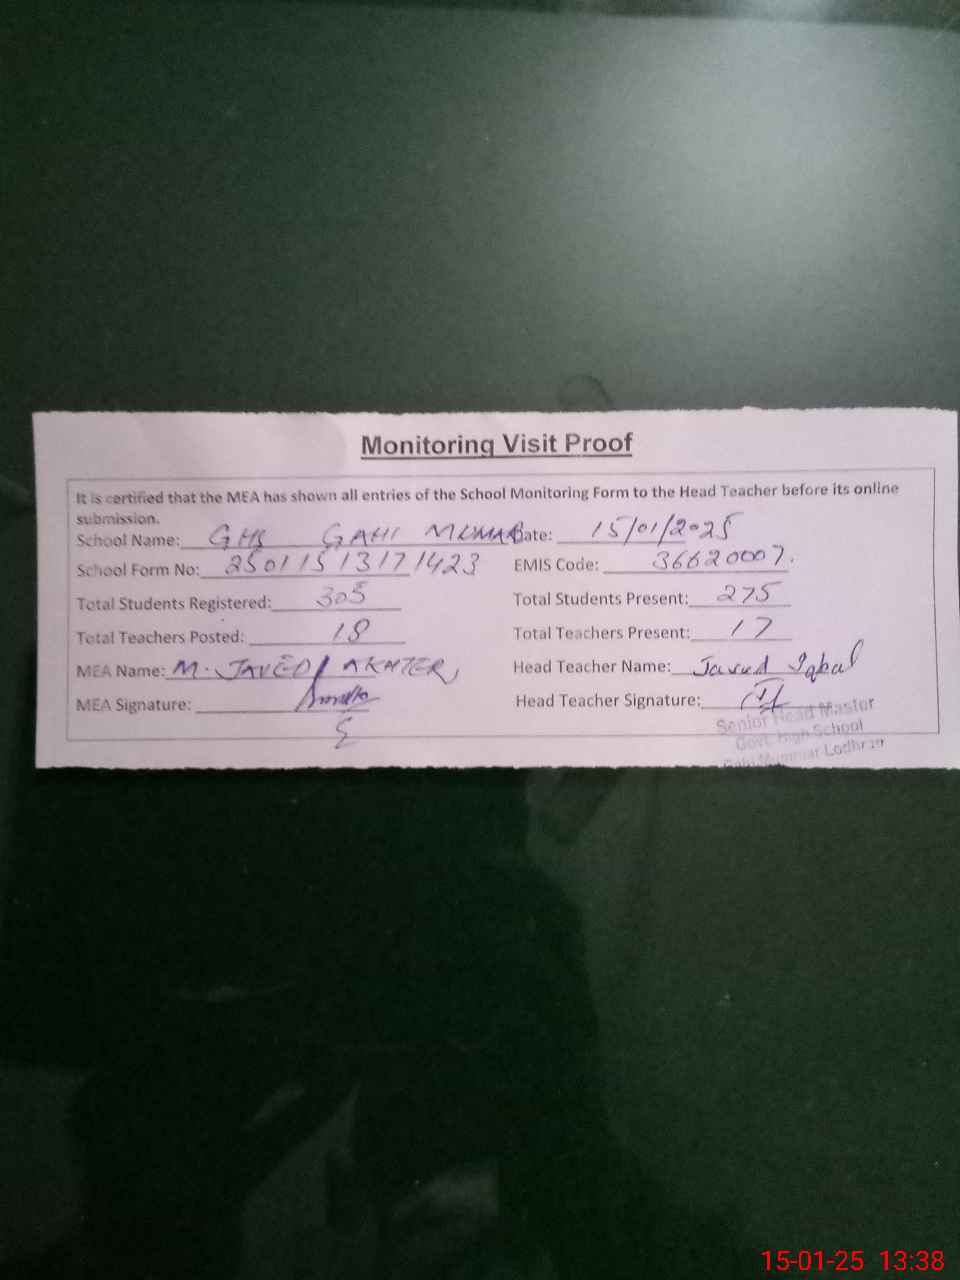 Monitoring Visit Proof
It is certified that the MEA has shown all entries of the School Monitoring Form to the Head Teacher before its online
submission.
School Name: GHS GAHI MUMAR Date: 15/01/2025
School Form No: 25011513171423 EMIS Code: 36620007.
Total Students Registered: 305 Total Students Present: 275
Total Teachers Posted: 18 Total Teachers Present: 17
MEA Name: M. JAVED AKHTER Head Teacher Name: Javed Iqbal
MEA Signature: Head Teacher Signature:
Senior Head Master
Govt. High School
Gahi Mummar Lodhran
15-01-25 13:38